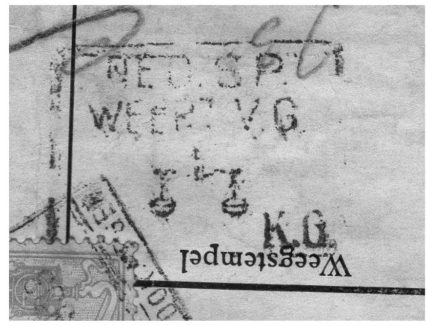 NED. SP.
WEERT V.G.
K.G.
Weegstempel